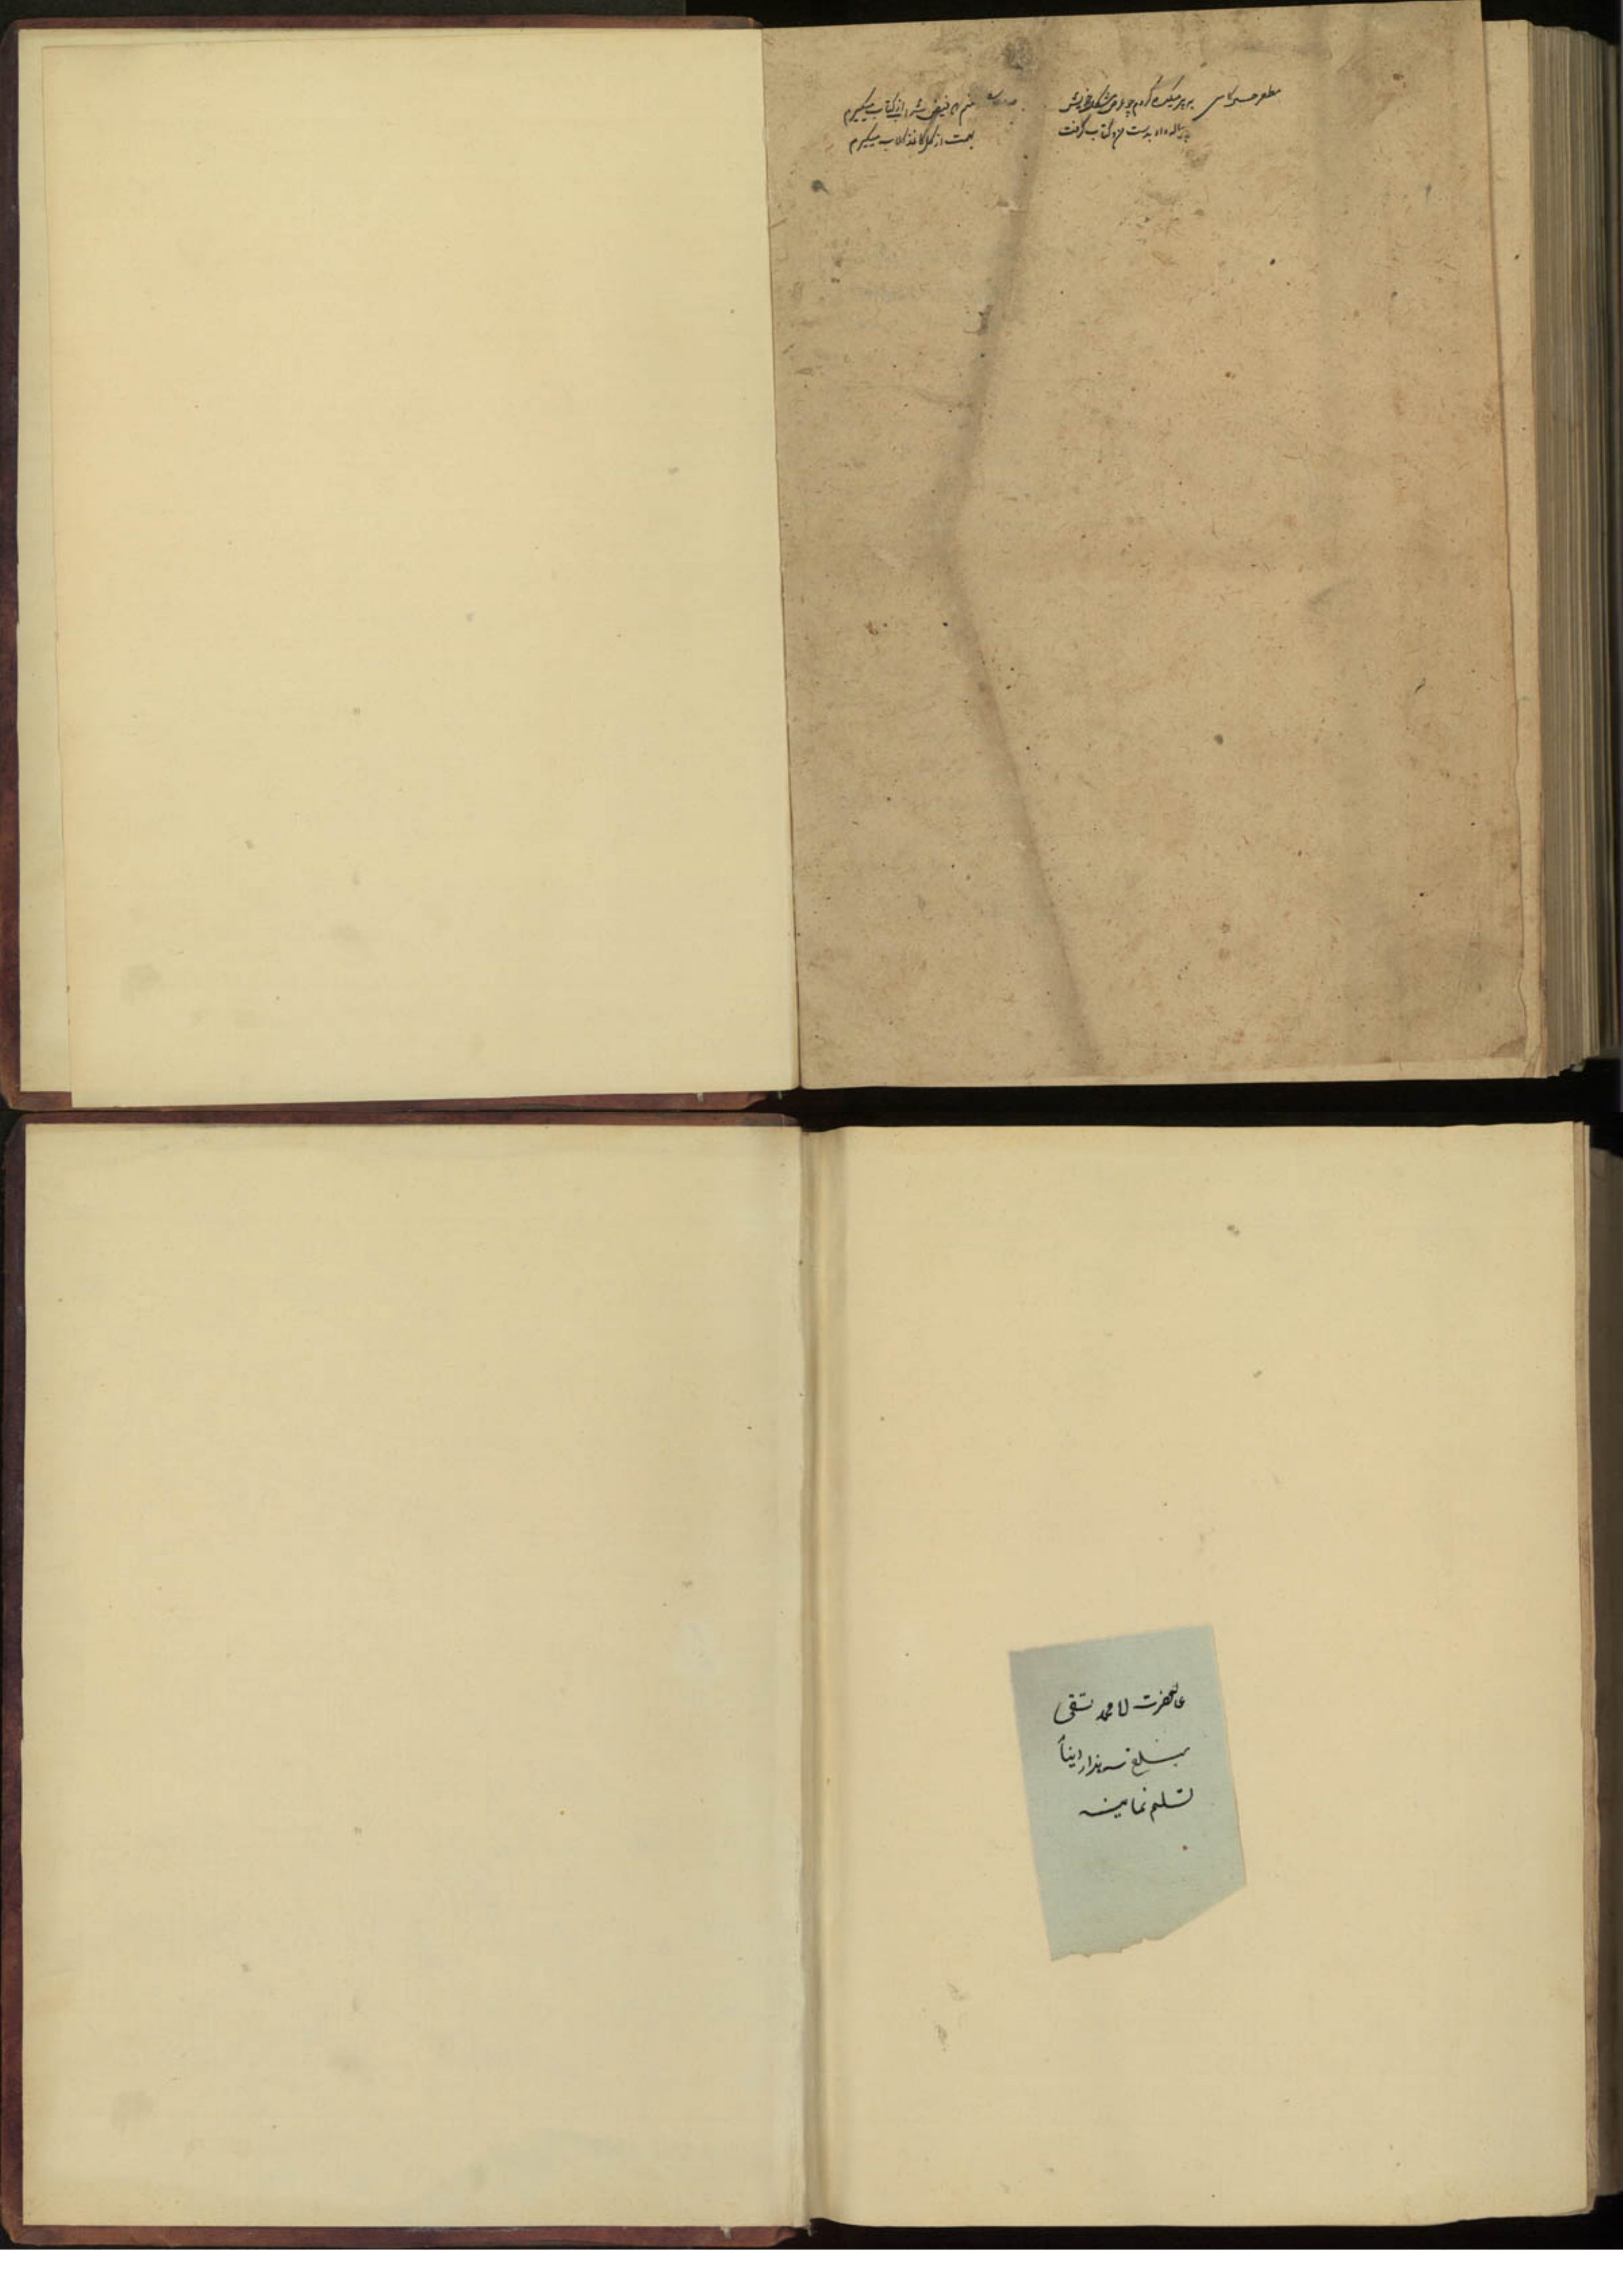 مظفر حسین کاشی
به پیر میکده کردم چو عرض مشکل خویش
پیاله داد بدست من و کتاب گرفت
منم که فیض شراب از کتاب میگیرم
بهمت از گل کاغذ گلاب میگیرم
عالیحضرت لا محمد تقی
مبلغ سه هزار دینار
تسلیم نمایند